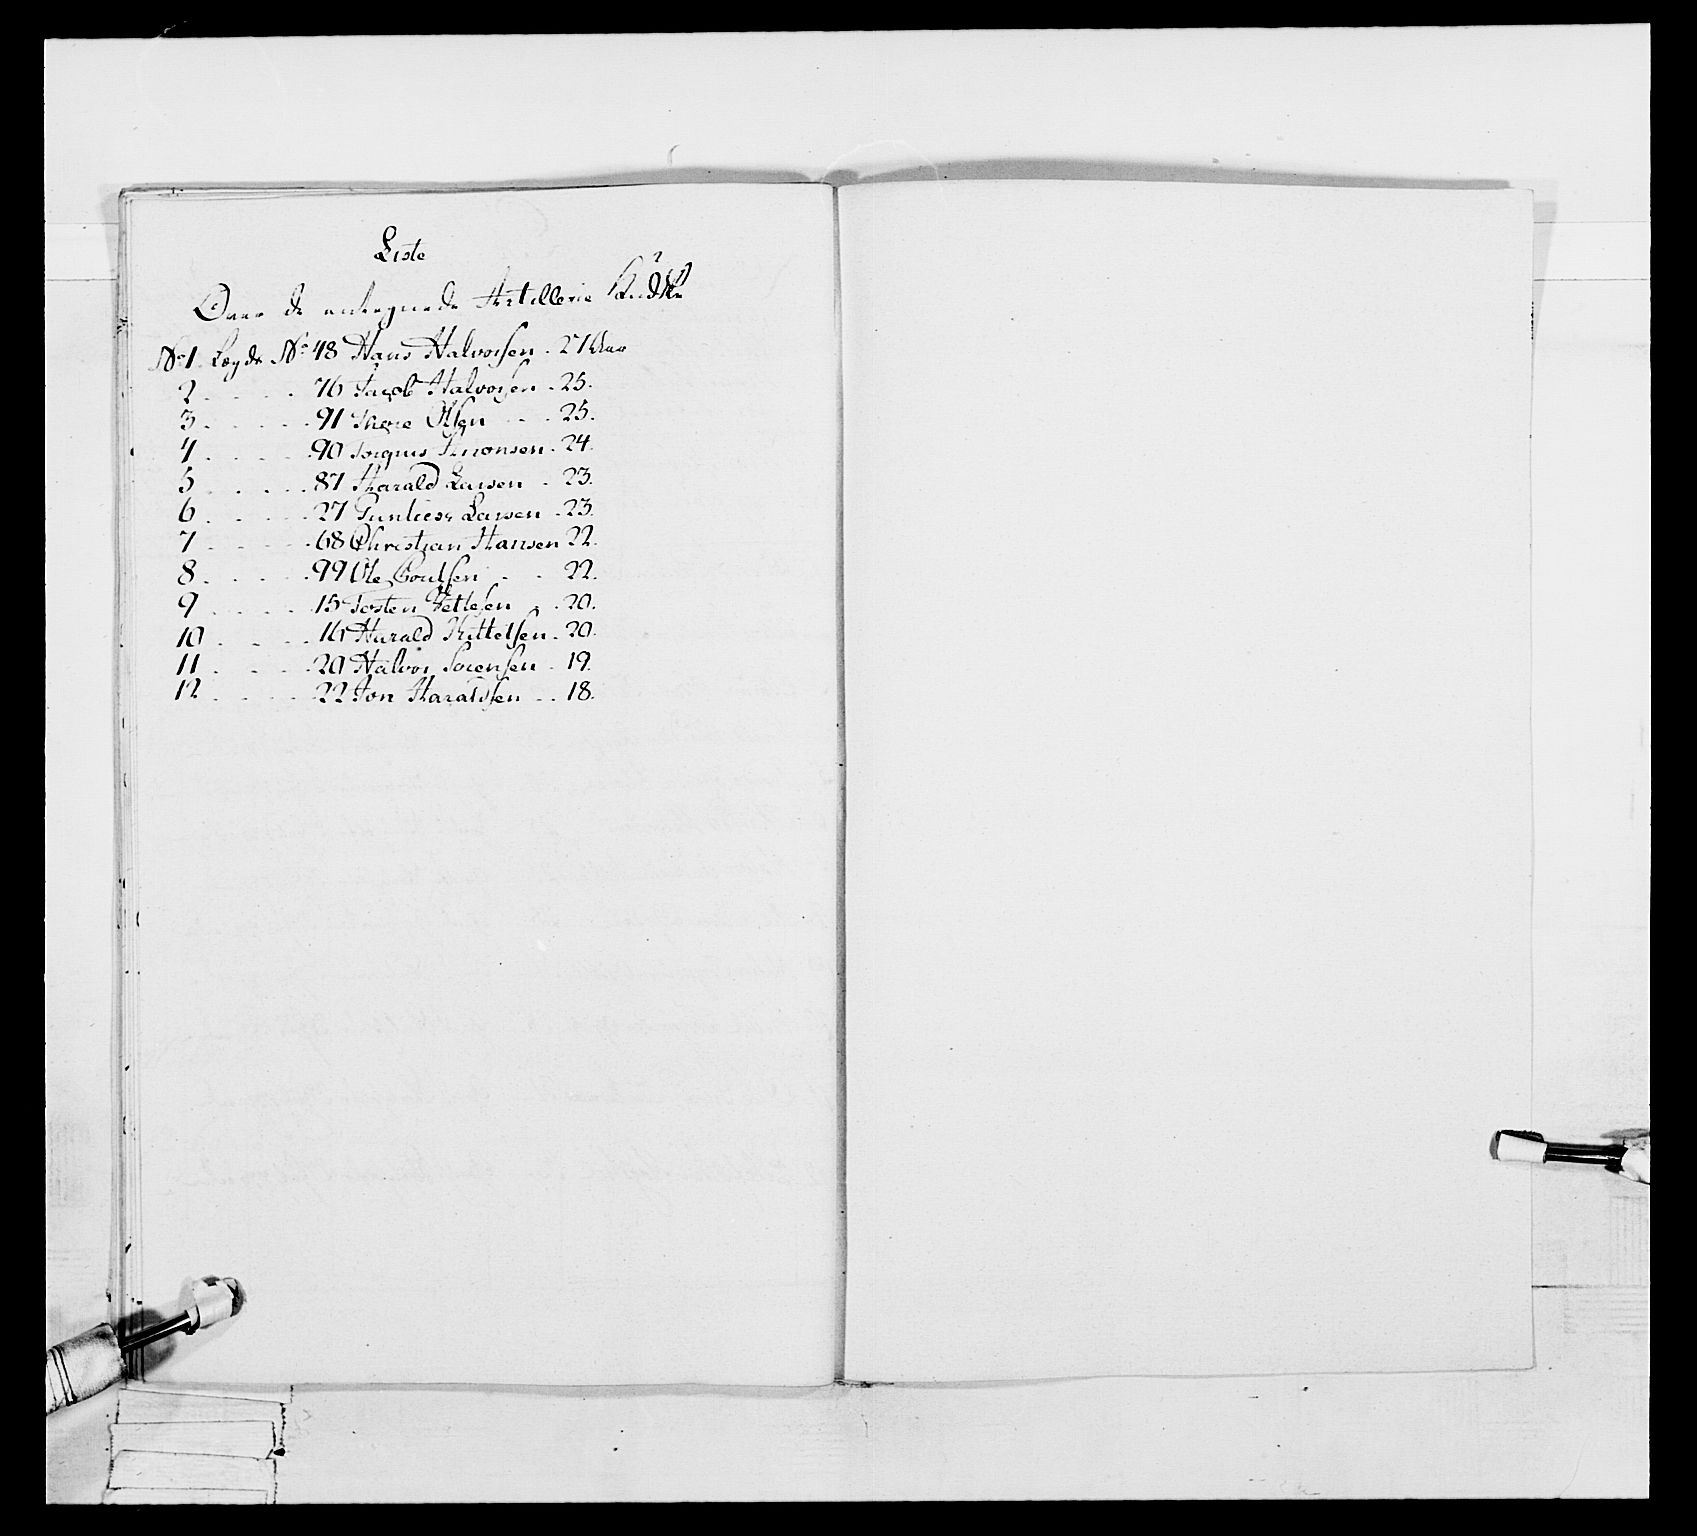 Liste
Over de antegnede Artillerie Kudske
No 1. Lægds No 48 Hans Halvorsen . 27 Aar
2 . . . . . 76 Jacob Halvorsen . 25.
3 . . . . . 91 Thore Olsen . . . 25.
4 . . . . . 90 Torgius . 24.
5 . . . . . 87 Harald Larsen . 23.
6 . . . . . 27 Larsen . 23.
7 . . . . . 68 Christian Hansen 22.
8 . . . . . 99 Ole . . 22.
9 . . . . . 15 Tosten Tetlesen . 20.
10 . . . . . 16 Harald Kittelsen . 20.
11 . . . . . 20 Halvor Sörensen . 19.
12 . . . . . 22 Jon Haraldsen . . 18.